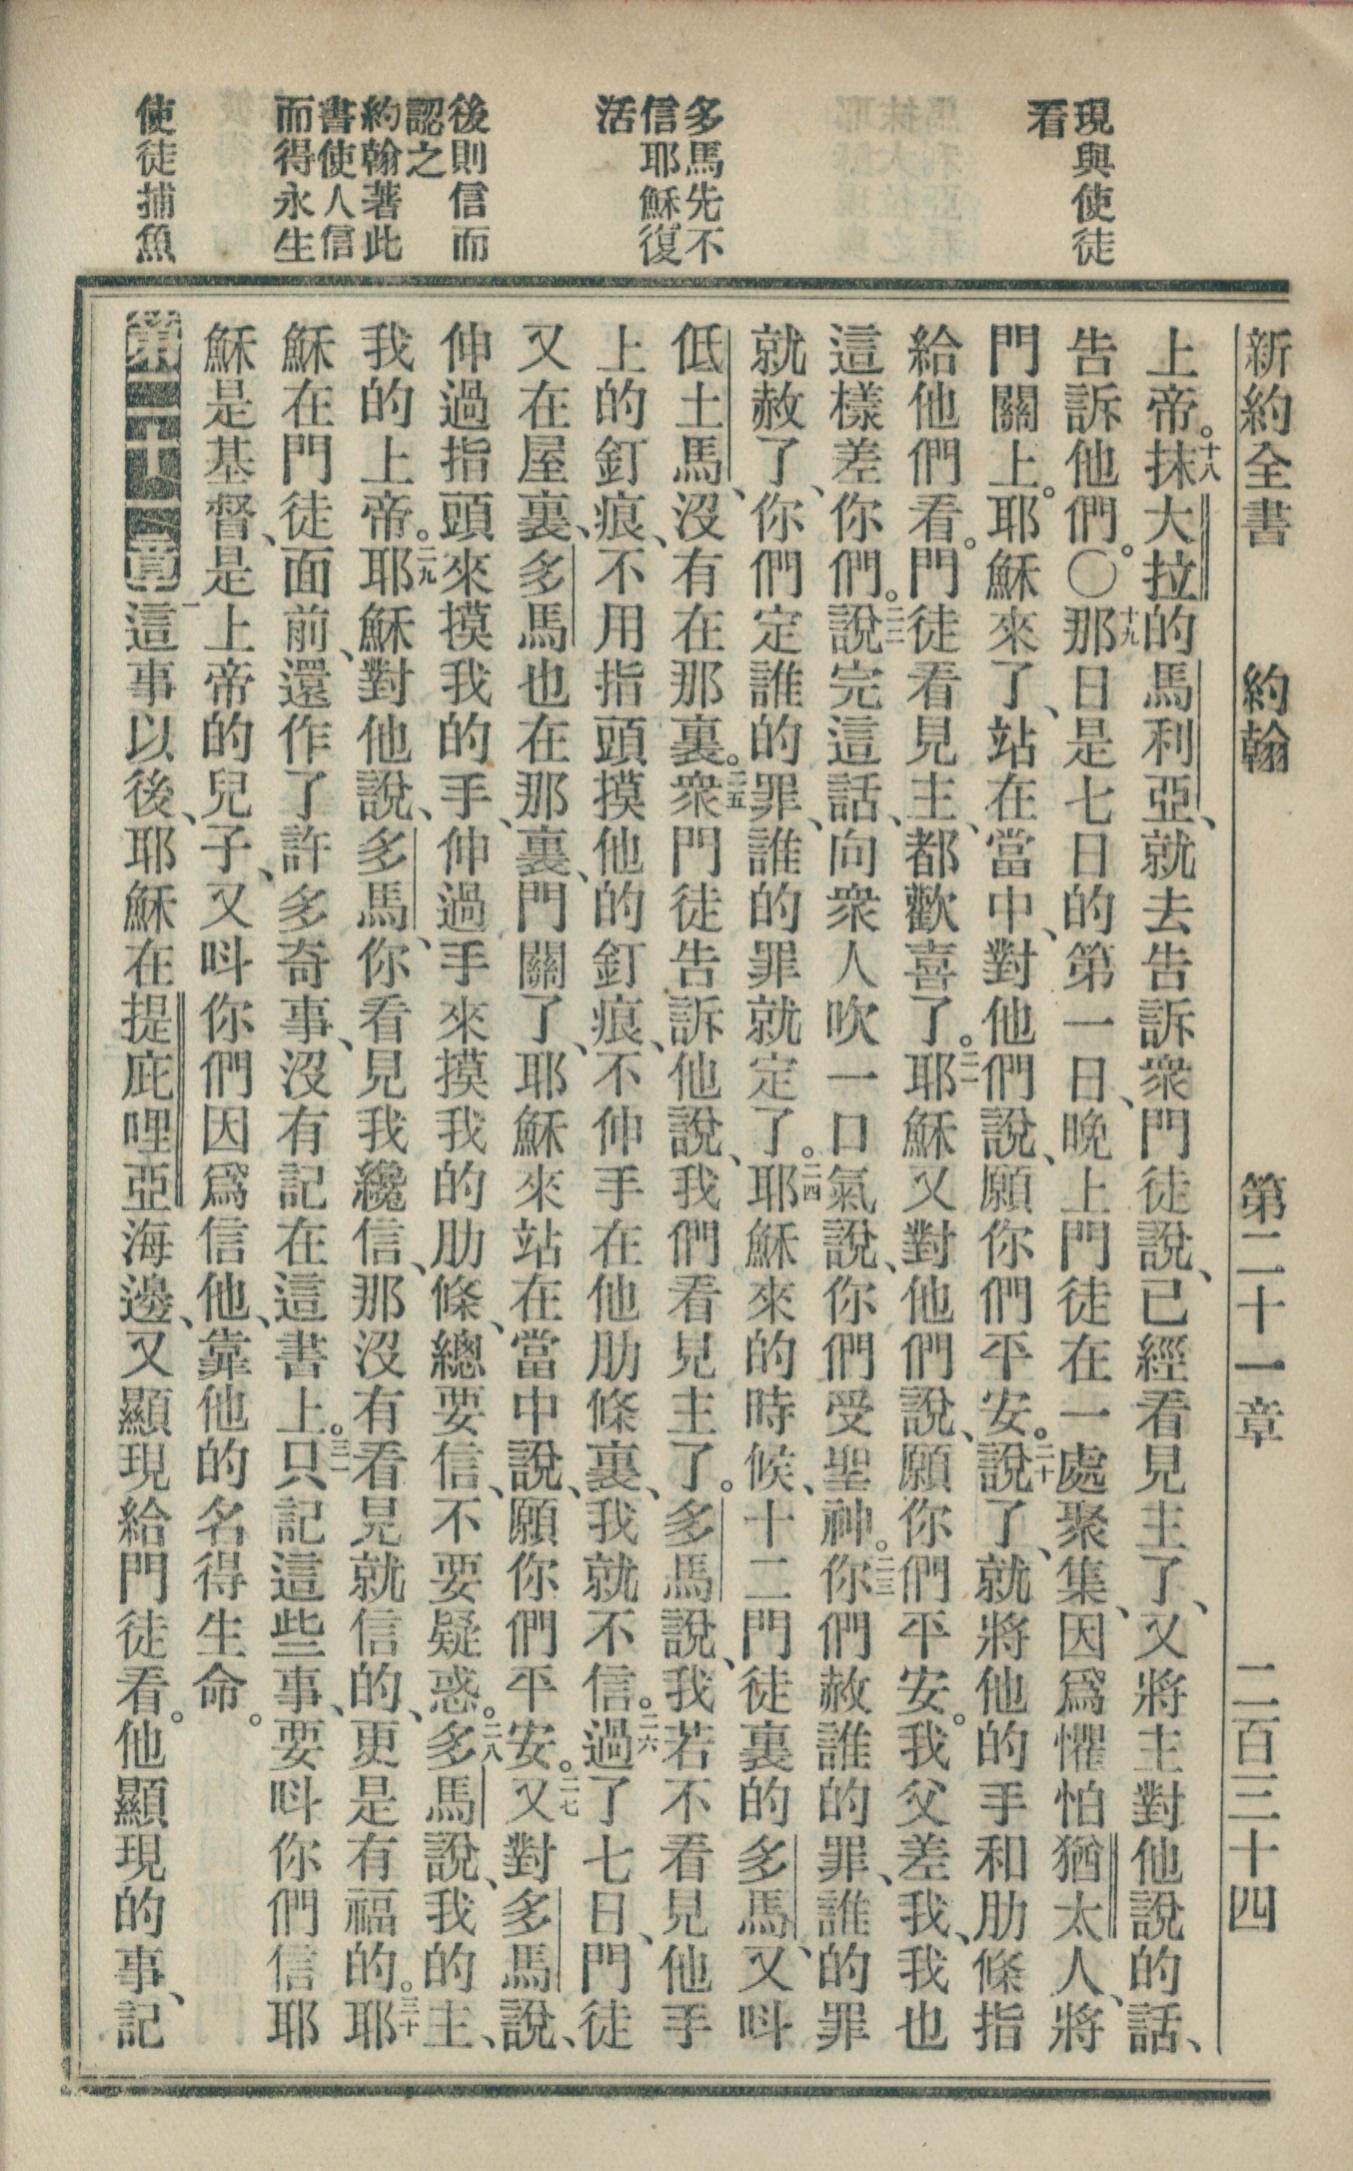 現與使徒
看
多馬先不
信耶穌復
活
後則信而
認之
約翰著此
書使人信
而得永生
使徒捕魚
新約全書 約翰 第二十一章 二百三十四
上帝。十八抹大拉的馬利亞、就去告訴衆門徒說、已經看見主了、又將主對他說的話、
告訴他們。〇十九那日是七日的第一日、晚上門徒在一處聚集、因爲懼怕猶太人、將
門關上。耶穌來了、站在當中、對他們說、願你們平安。二十說了、就將他的手和肋條指
給他們看。門徒看見主、都歡喜了。二一耶穌又對他們說、願你們平安。我父差我、我也
這樣差你們。二二說完這話、向衆人吹一口氣說、你們受聖神。二三你們赦誰的罪、誰的罪
就赦了、你們定誰的罪、誰的罪就定了。二四耶穌來的時候、十二門徒裏的多馬、又呌
低土馬、沒有在那裏。二五衆門徒告訴他說、我們看見主了。多馬說、我若不看見他手
上的釘痕、不用指頭摸他的釘痕、不伸手在他肋條裏、我就不信。二六過了七日、門徒
又在屋裏、多馬也在那裏、門關了、耶穌來站在當中說、願你們平安。二七又對多馬說、
伸過指頭來摸我的手、伸過手來摸我的肋條、總要信、不要疑惑。二八多馬說、我的主、
我的上帝。二九耶穌對他說、多馬、你看見我纔信、那沒有看見就信的、更是有福的。三十耶
穌在門徒面前、還作了許多奇事、沒有記在這書上。三一只記這些事、要呌你們信耶
穌是基督、是上帝的兒子、又呌你們因爲信他、靠他的名得生命。
第二十一章 一這事以後、耶穌在提庇哩亞海邊、又顯現給門徒看。他顯現的事、記